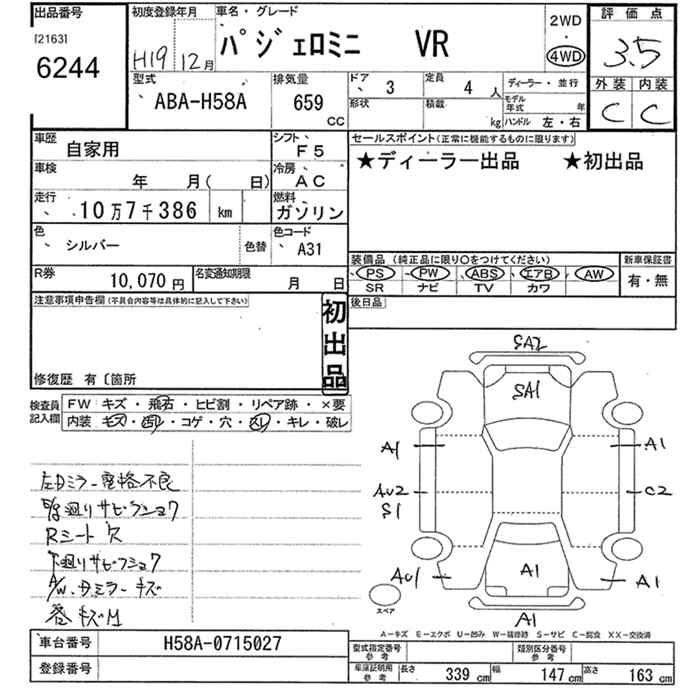 出品番号
[2163]
6244
初度登録年月
H19 12月
車名・グレード
パジェロミニ VR
2WD
・
4WD
評価点
3.5
外装 内装
C C
型式
ABA-H58A
排気量
659
CC
ドア 3
定員 4 人
ディーラー・並行
形状
積載 kg
モデル年式 年
ハンドル 左・右
車歴
自家用
シフト F5
車検
年 月( 日)
冷房 AC
走行
10万7千386 km
燃料
ガソリン
色
シルバー
色替
色コード
A31
R券
10,070 円
名変通知期限
月 日
セールスポイント(正常に機能するものに限ります)
★ディーラー出品 ★初出品
装備品(純正品に限り○をつけてください)
PS PW ABS エアB AW
SR ナビ TV カワ
新車保証書
有・無
後日品
注意事項申告欄(不具合内容等は具体的に記入して下さい)
初出品
修復歴 有〔箇所
検査員記入欄
FW キズ・飛石・ヒビ割・リペア跡・×要
内装 キズ・汚れ・コゲ・穴・スレ・キレ・破レ
左Dミラー電格不良
廻りサビフショク
Rシート穴
下廻りサビフショク
A/W、Dミラーキズ
キズM
SA2
SA1
A1
A1
AU2
S1
C2
AU1
A1
A1
A1
スペア
A-キズ E-エクボ U-凹み W-補修跡 S-サビ C-腐食 XX-交換済
車台番号
H58A-0715027
登録番号
型式指定番号
参考
類別区分番号
参考
車庫証明用
参考
長さ 339 cm
幅 147 cm
高さ 163 cm